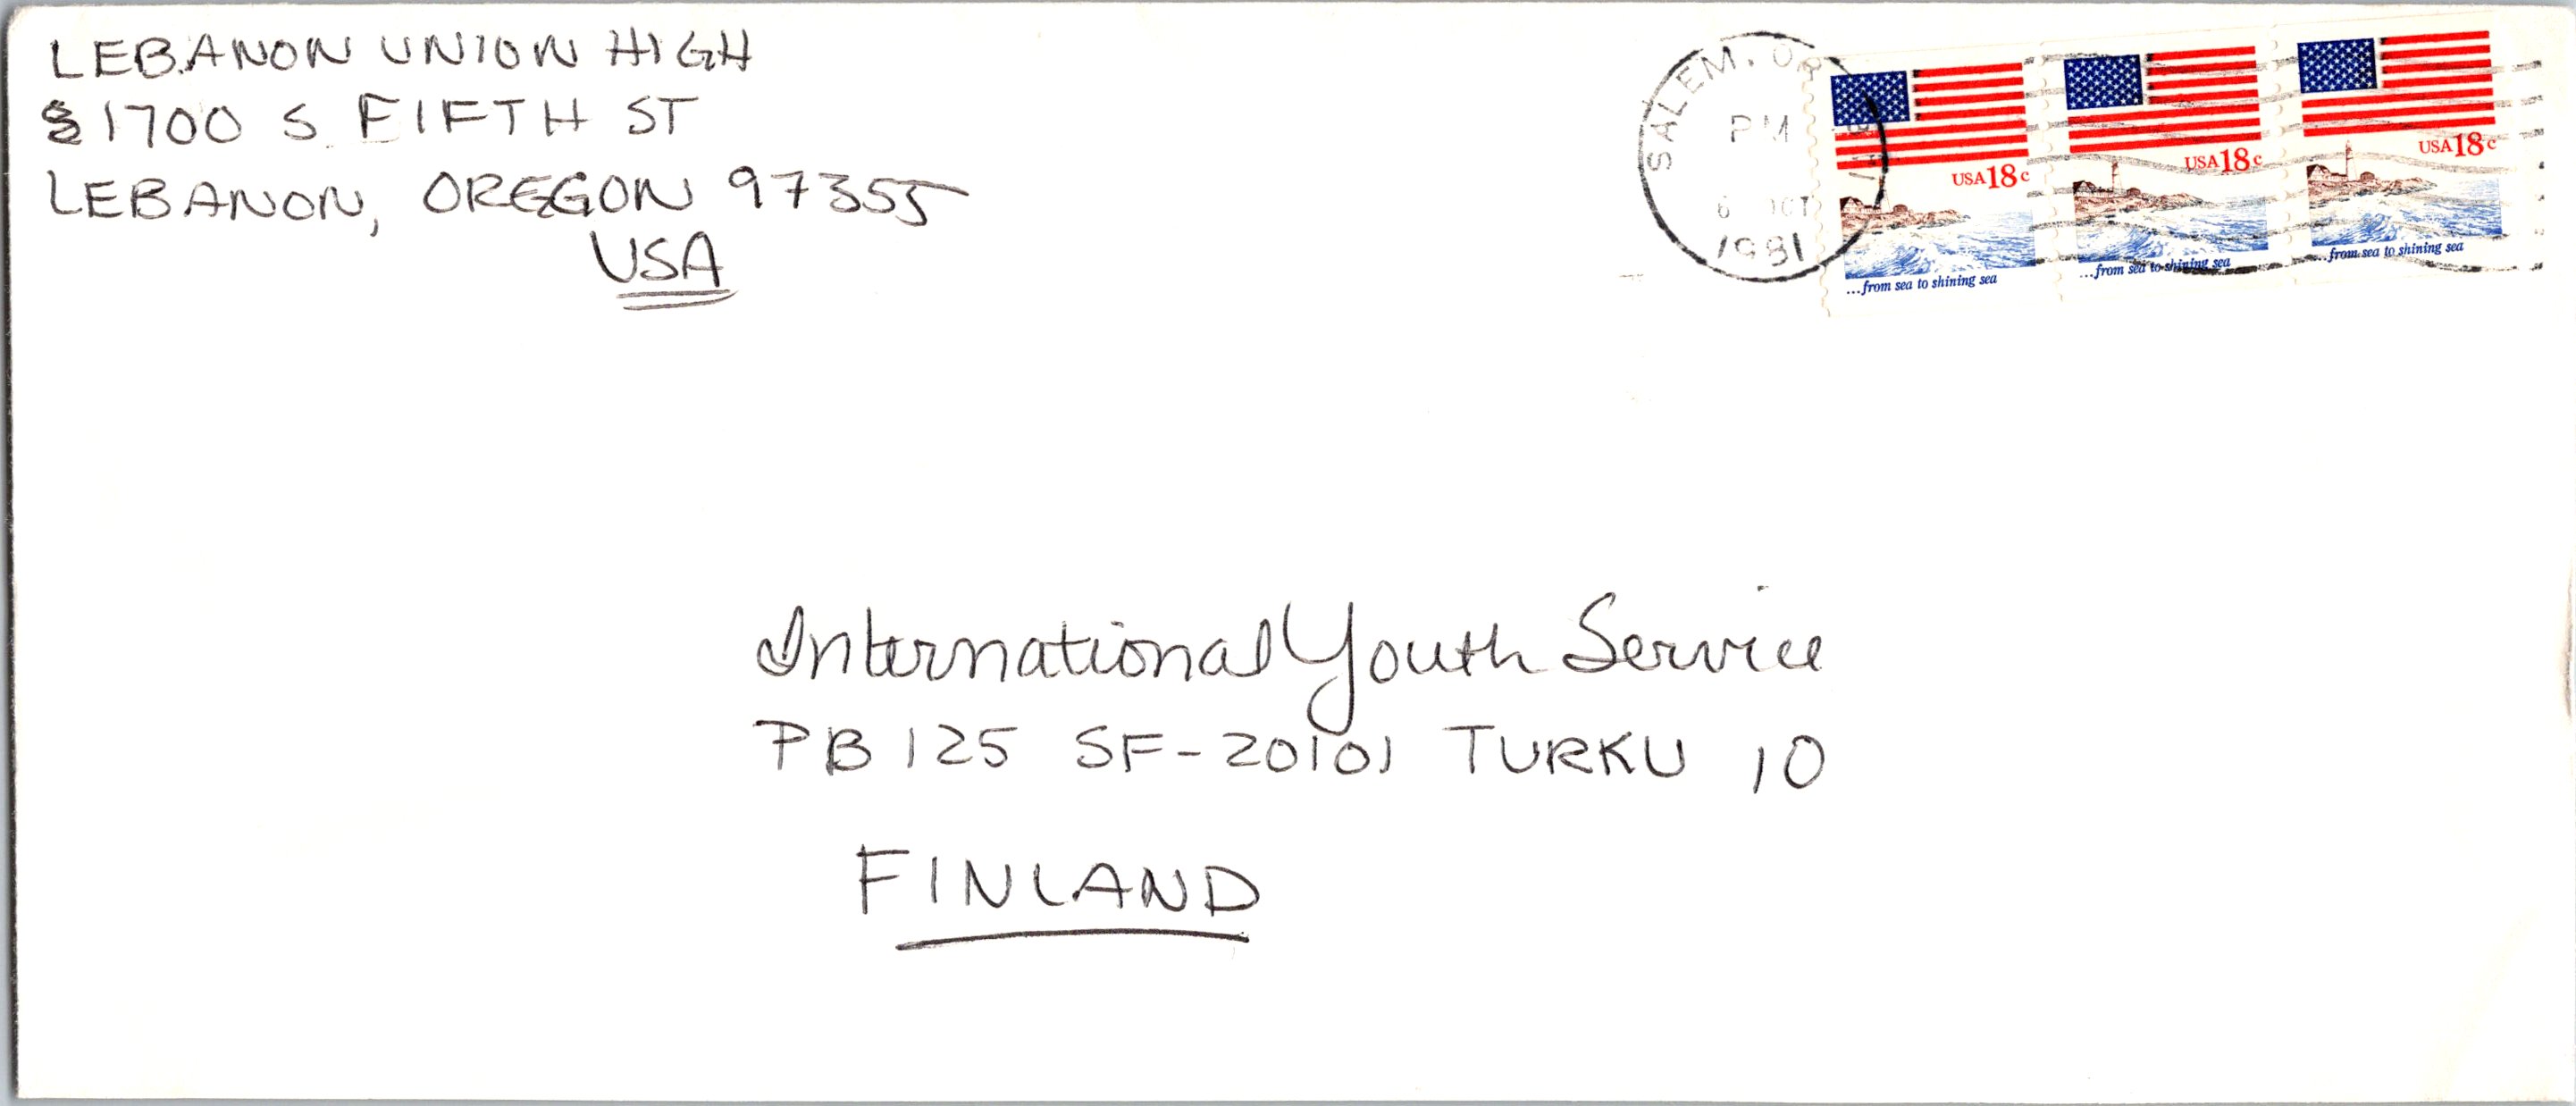 LEBANON UNION HIGH
1700 S FIFTH ST
LEBANON, OREGON 97355
USA
SALEM, OR
PM
6 OCT
1981
USA 18c
...from sea to shining sea
USA 18c
...from sea to shining sea
USA 18c
...from sea to shining sea
International Youth Service
PB 125 SF-20101 TURKU 10
FINLAND